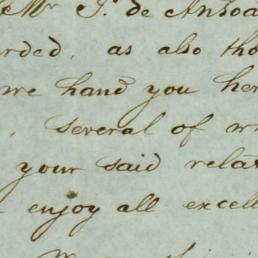 Mr J. de Ansoa
arded, as also tho
we hand you her
, several of w
your said relat
enjoy all excell